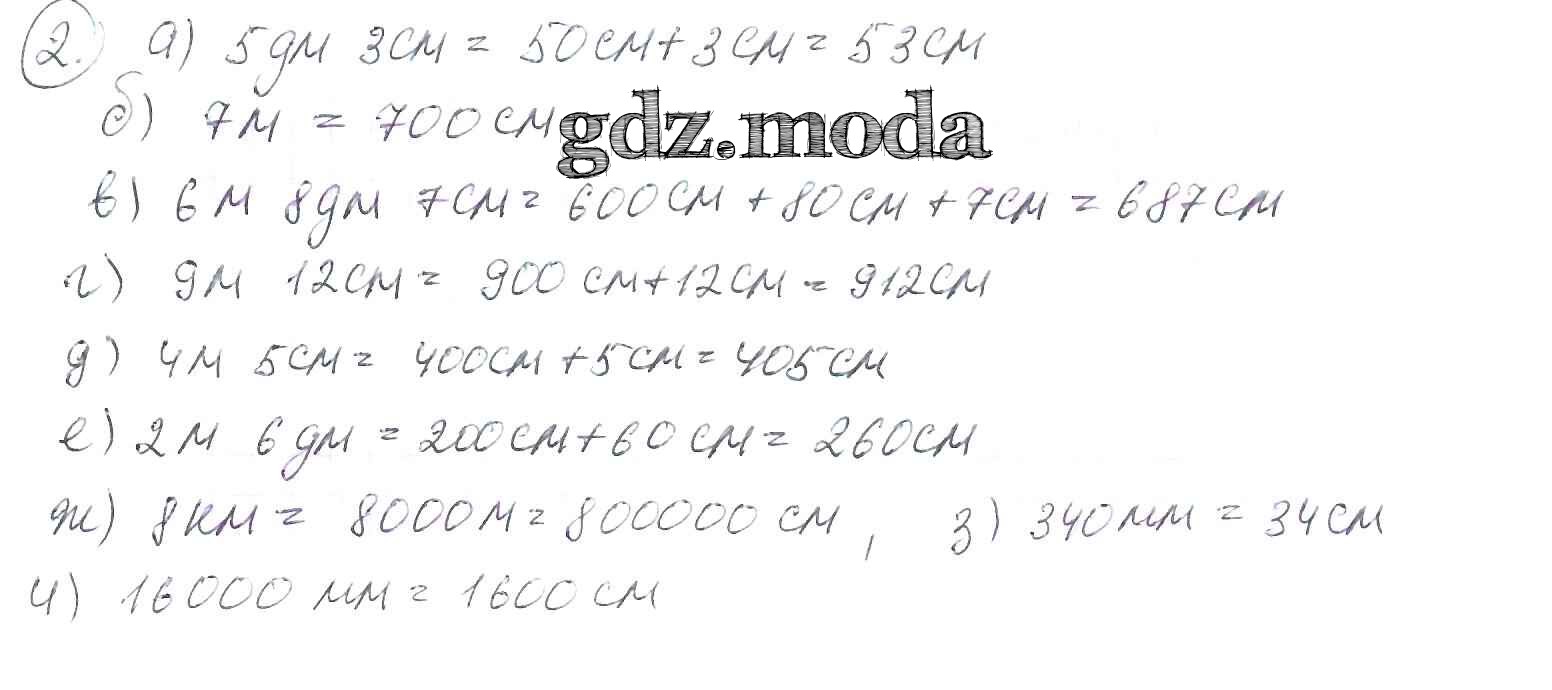 2. а) 5дм 3см = 50см+3см = 53см
б) 7м = 700см gdz.moda
в) 6м 8дм 7см = 600см + 80см + 7см = 687см
г) 9м 12см = 900 см+12см = 912см
д) 4м 5см = 400см +5см = 405см
е) 2м 6дм = 200см+60см = 260см
ж) 8км = 8000м = 800000 см, з) 340мм = 34см
и) 16000 мм = 1600см